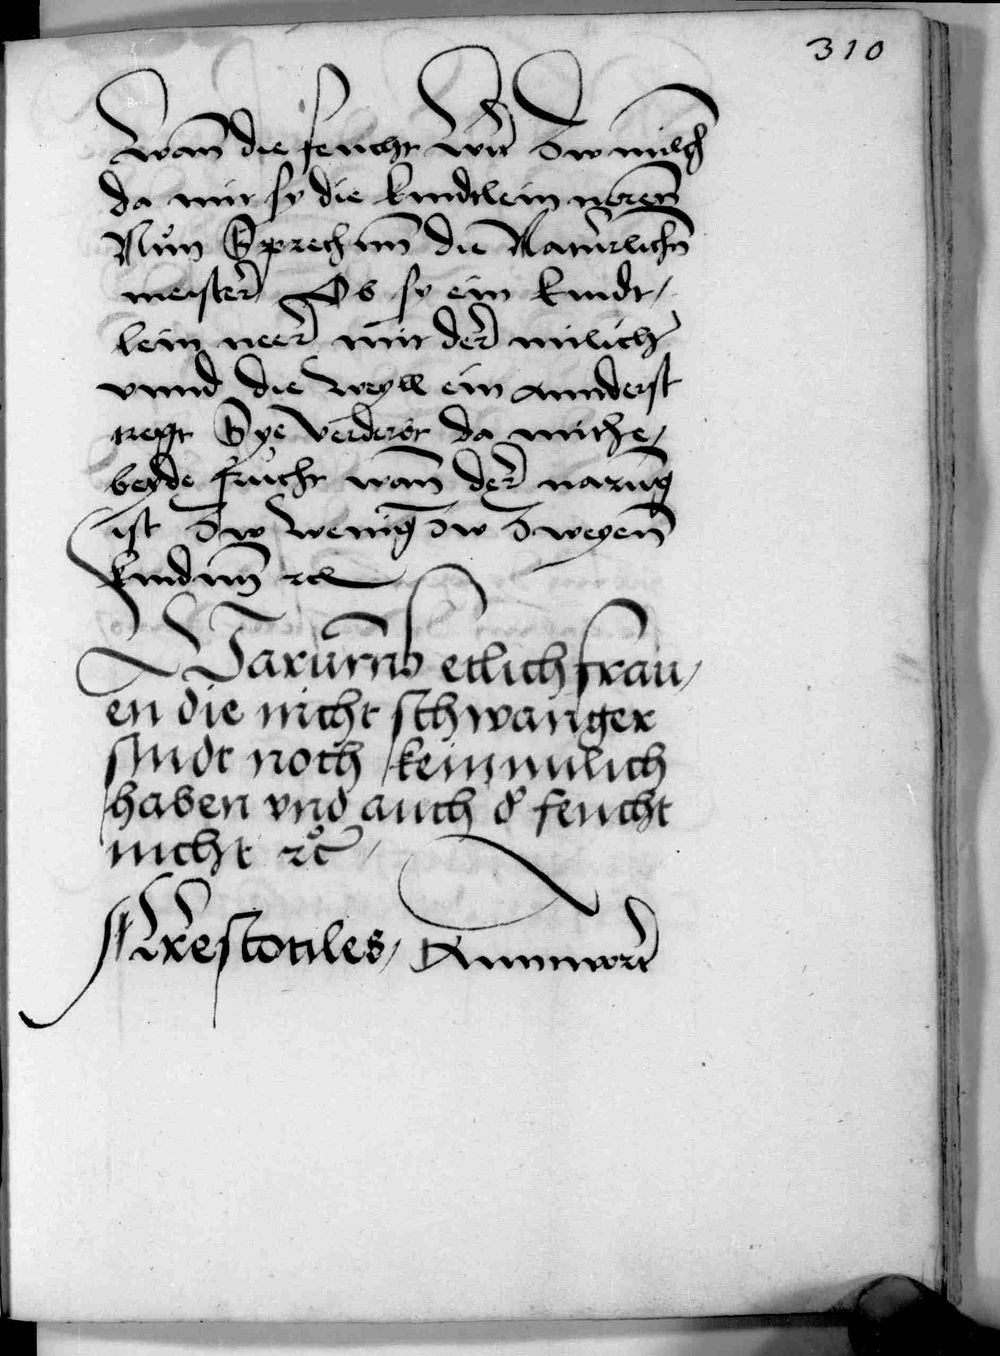 310
Wan̄ die feucht wirt zw milch
da mit sy die kindtlein neren̄
Nůn Sprechnn die Natürlichn̄
meister Ob sy ein kindt,
lein neer mit der milich
vnnd die weyll ein annderst
tregt Sye verderbt da mit he,
beyde frücht wan̄ der narūg
ist zw wenig zw zweyen̄
kindnn̄ rc
Darūmb etlich frau,
en die nicht schwanger
sindt noch kein milich
haben vnd auch d' feucht
nicht rc
Arestotiles, Anntwort